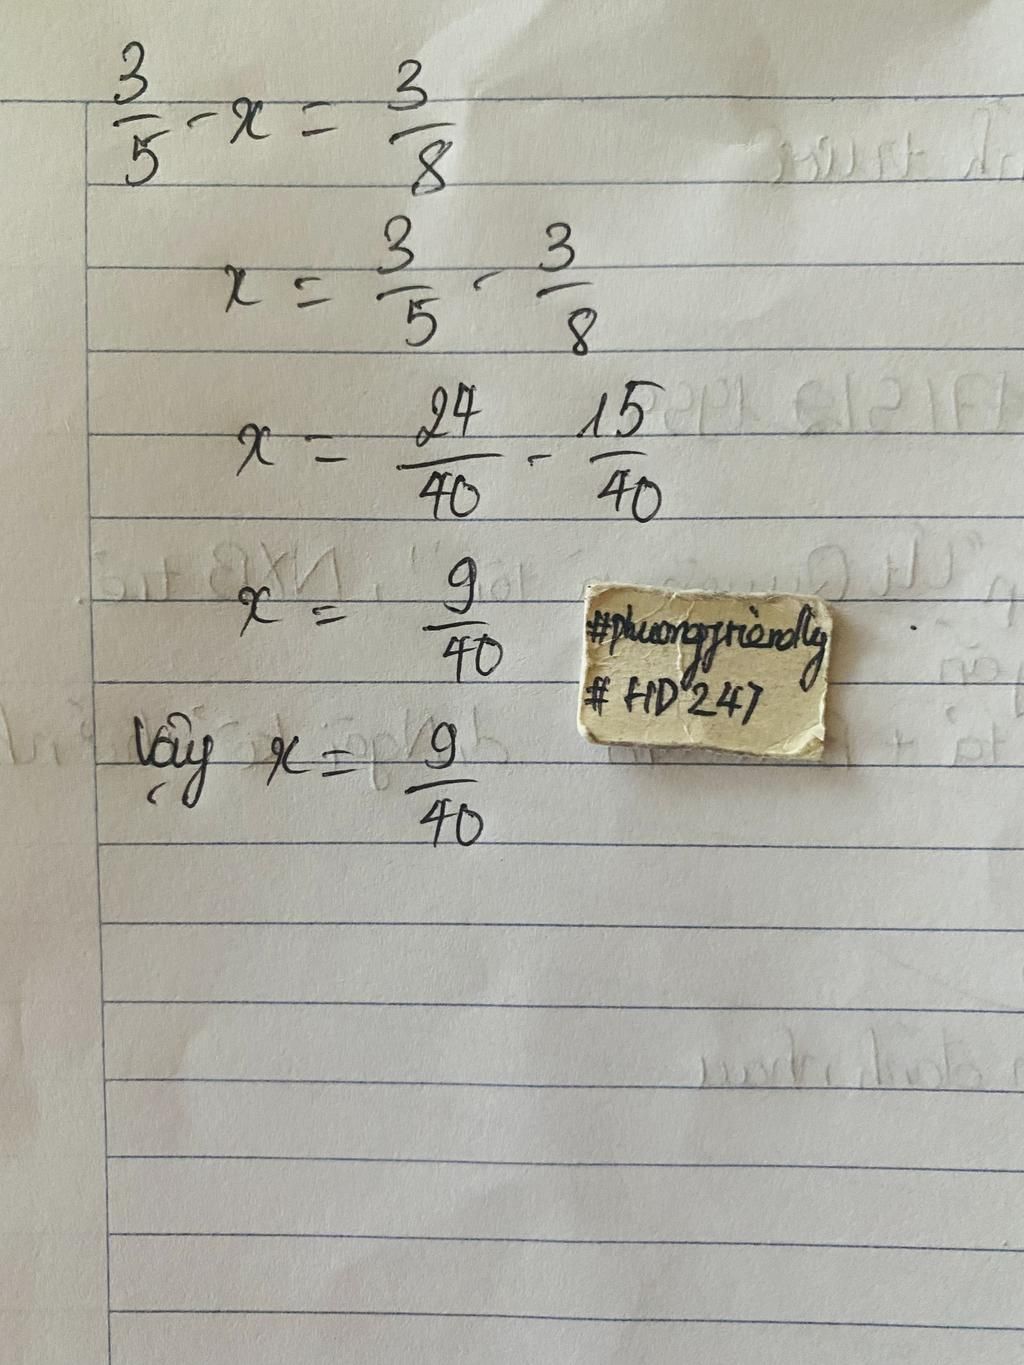 3/5 - x = 3/8
x = 3/5 - 3/8
x = 24/40 - 15/40
x = 9/40
#phuongfriendly
# HD 247
Vậy x = 9/40